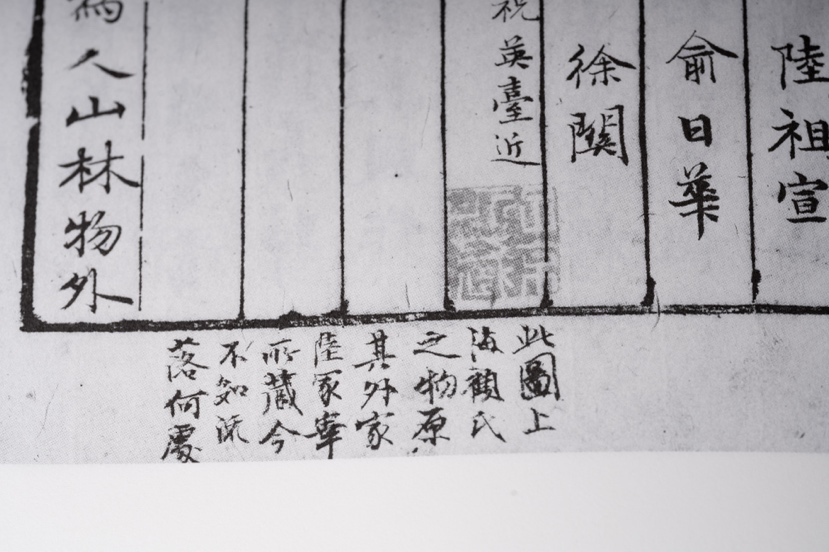 陸祖宣
俞日華
徐
祝英臺近
人山林物外
此圖上
海顧氏
之物原
其外家
陸冢宰
所藏今
不知流
落何處